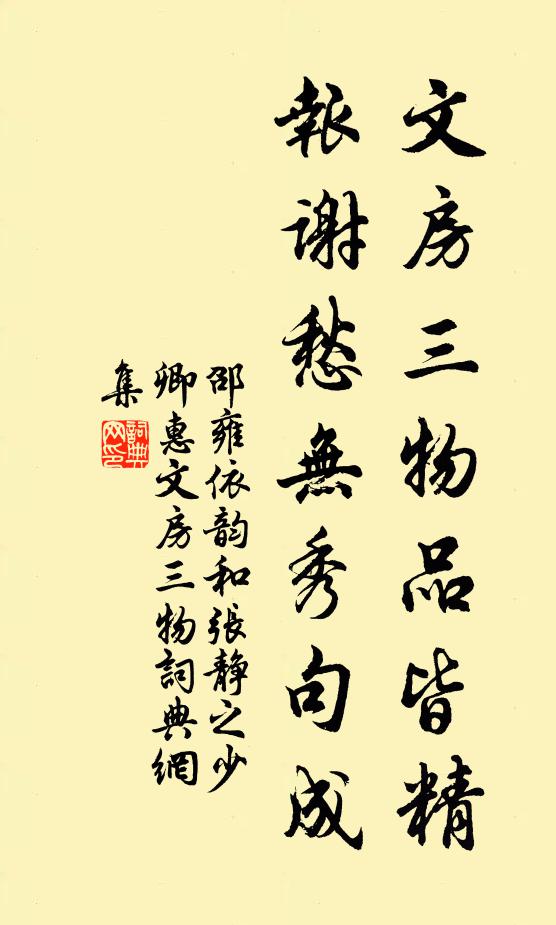 文房三物品皆精
報謝愁無秀句成
邵雍依韵和張静之少
卿惠文房三物詞典網
集
詞典网印